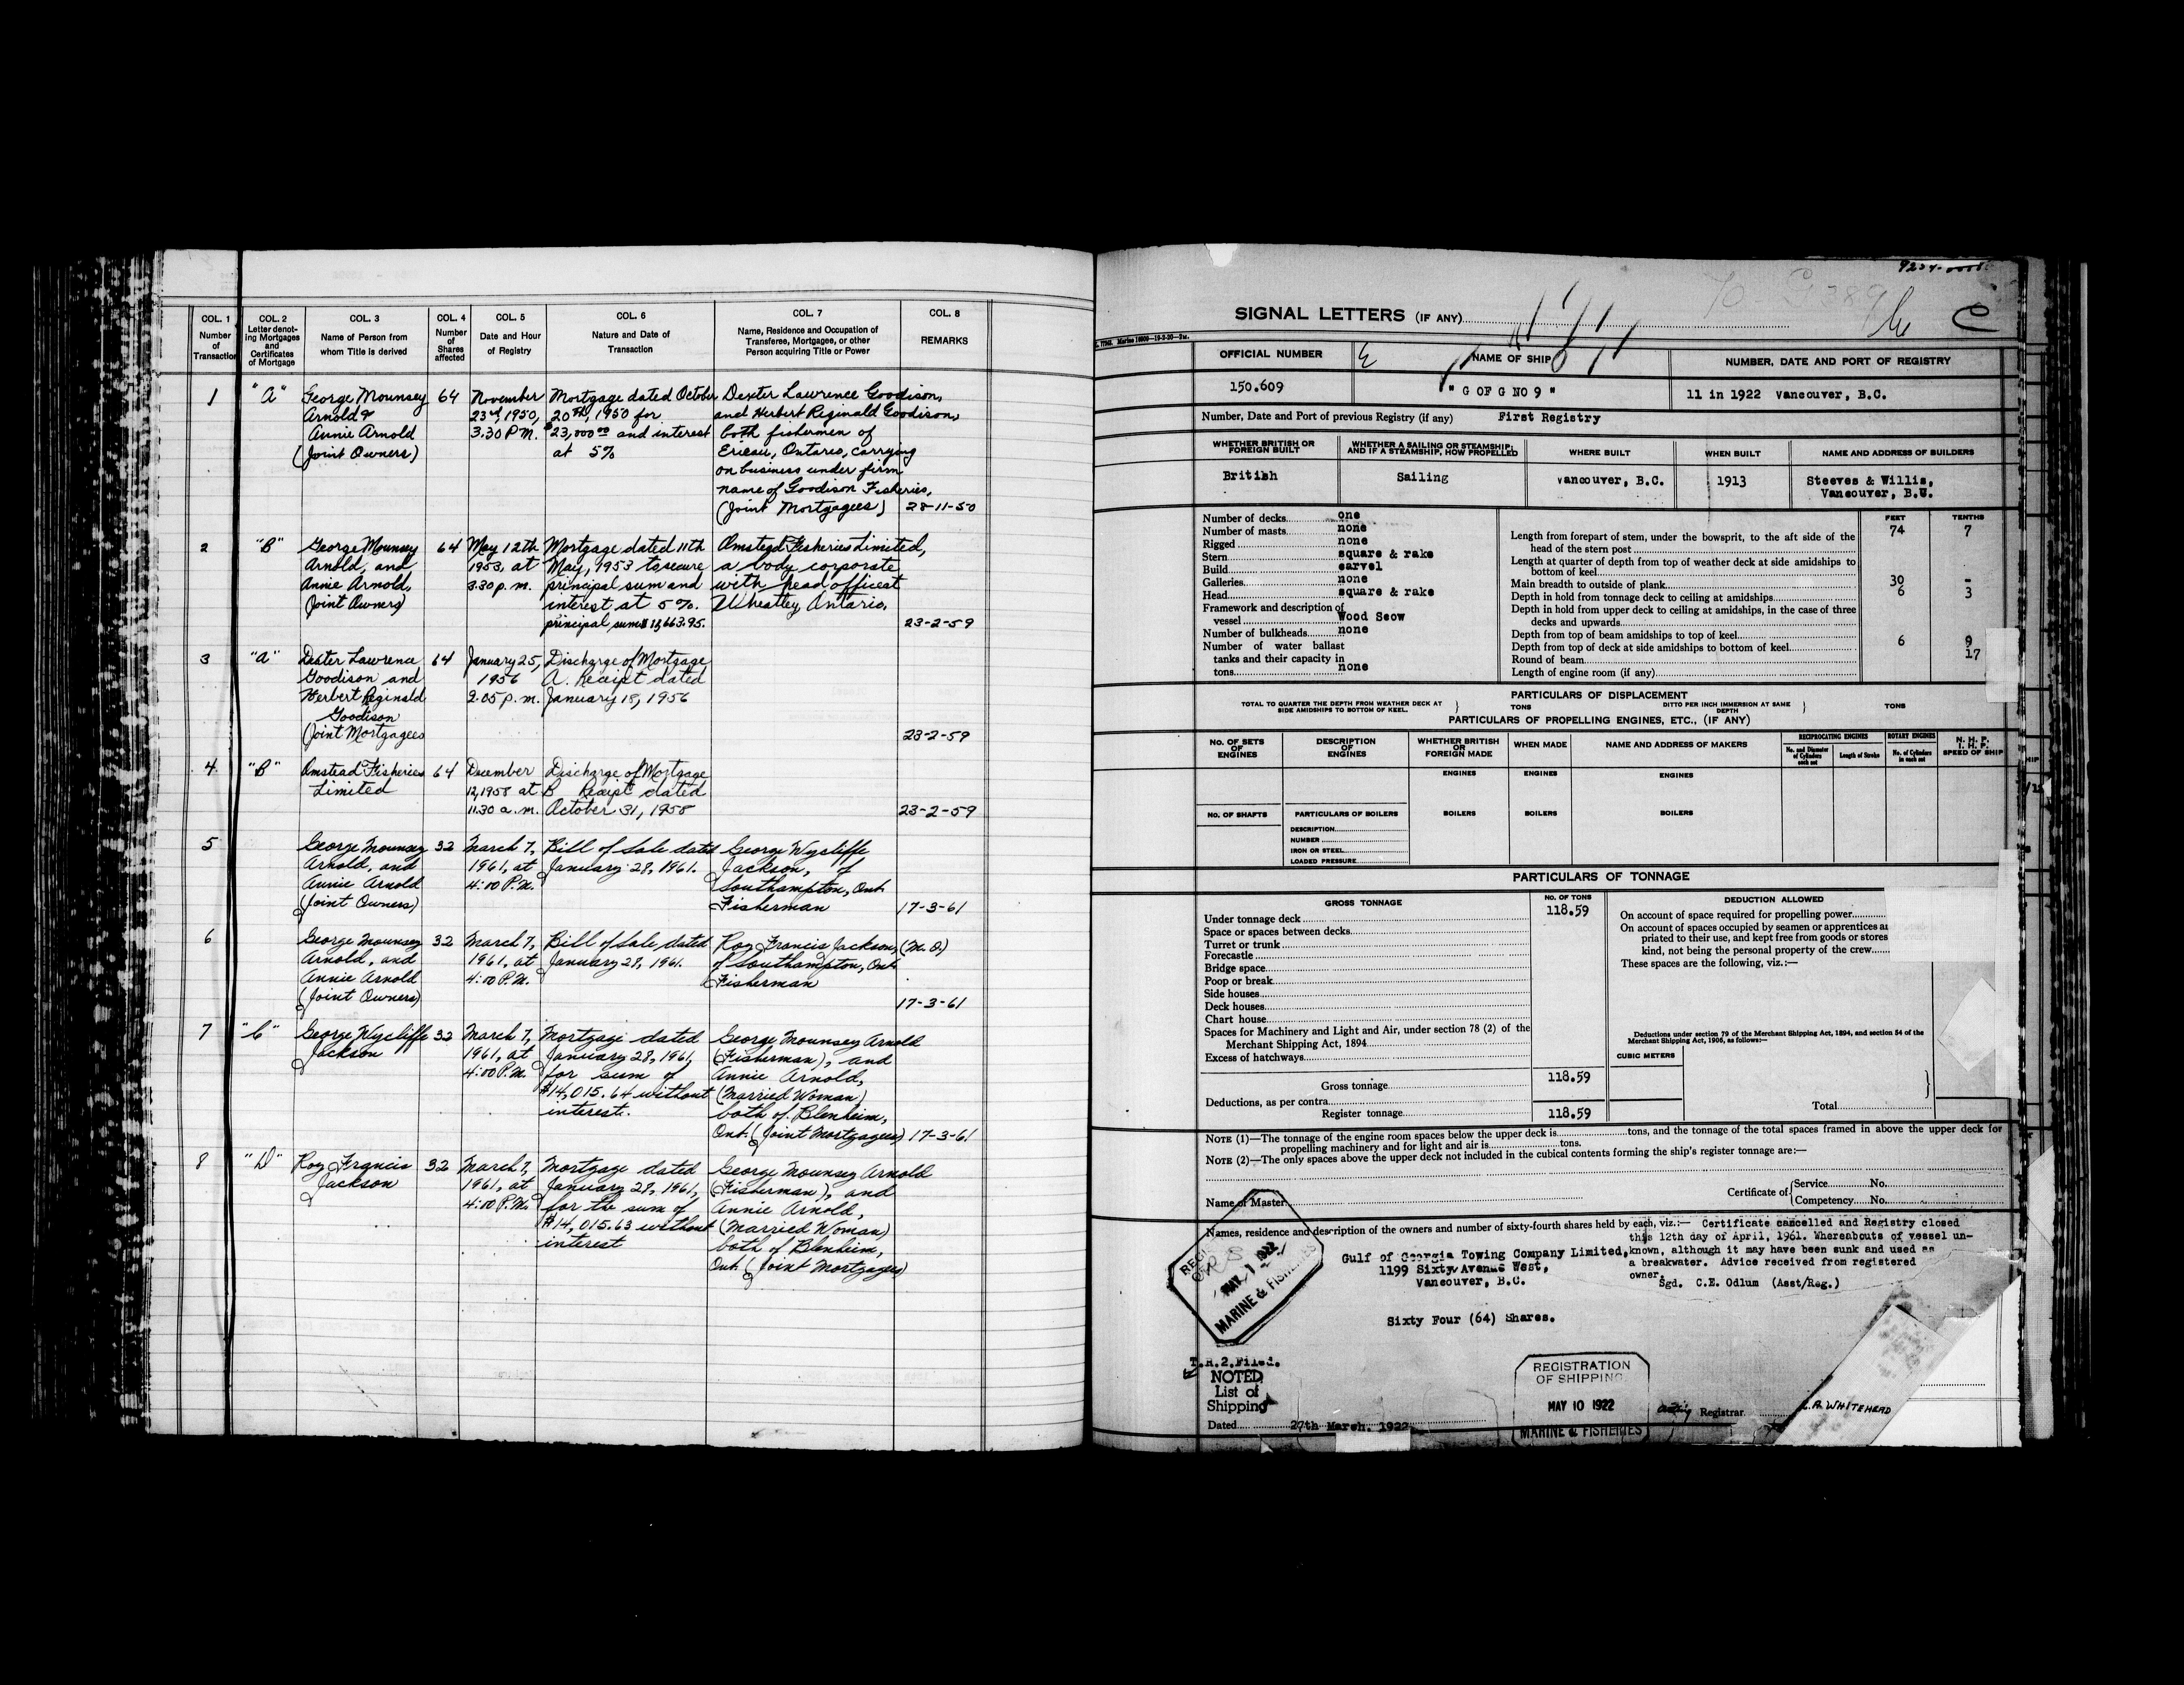 COL. 1
Number
of
Transaction
COL. 2
Letter denot-
ing Mortgages
and
Certificates
of Mortgage
COL. 3
Name of Person from
whom Title is derived
COL. 4
Number
of
Shares
affected
COL. 5
Date and Hour
of Registry
COL. 6
Nature and Date of
Transaction
COL. 7
Name, Residence and Occupation of
Transferee, Mortgagee, or other
Person acquiring Title or Power
COL. 8
REMARKS
1 "A" George Mounsey 64 November Mortgage dated October Dexter Lawrence Goodison,
Arnold & 23rd, 1950, 20th, 1950 for and Herbert Reginald Goodison,
Annie Arnold 3.30 P.M. $23,000.00 and interest both fishermen of
(Joint Owners) at 5% Erieau, Ontario, carrying
on business under firm
name of Goodison Fisheries,
(Joint Mortgagees) 28-11-50
2 "B" George Mounsey 64 May 12th Mortgage dated 11th Omstead Fisheries Limited,
Arnold, and 1953, at May, 1953 to secure a body corporate
Annie Arnold, 3.30 p.m. principal sum and with head office at
(Joint Owners) interest at 5%. Wheatley, Ontario.
principal sum $13,663.95. 23-2-59
3 "A" Dexter Lawrence 64 January 25, Discharge of Mortgage
Goodison and 1956 A. Receipt dated
Herbert Reginald 2.05 p.m. January 18, 1956
Goodison
(Joint Mortgagees 23-2-59
4 "B" Omstead Fisheries 64 December Discharge of Mortgage
Limited 12, 1958 at B Receipt dated
11.30 a.m. October 31, 1958 23-2-59
5 George Mounsey 32 March 7, Bill of Sale dated George Wycliffe
Arnold, and 1961, at January 28, 1961. Jackson, of
Annie Arnold 4:00 P.M. Southampton, Ont.
(Joint Owners) Fisherman 17-3-61
6 George Mounsey 32 March 7, Bill of Sale dated Roy Francis Jackson, (M.O.)
Arnold, and 1961, at January 28, 1961. of Southampton, Ont.
Annie Arnold 4:00 P.M. Fisherman
(Joint Owners) 17-3-61
7 "C" George Wycliffe 32 March 7, Mortgage dated George Mounsey Arnold
Jackson 1961, at January 28, 1961, (Fisherman), and
4:00 P.M. for sum of Annie Arnold,
$14,015.64 without (Married Woman)
interest. both of Blenheim,
Ont. (Joint Mortgagees) 17-3-61
8 "D" Roy Francis 32 March 7, Mortgage dated George Mounsey Arnold
Jackson 1961, at January 28, 1961, (Fisherman), and
4:00 P.M. for the sum of Annie Arnold,
$14,015.63 without (Married Woman)
interest both of Blenheim,
Ont. (Joint Mortgagees)
SIGNAL LETTERS (IF ANY)
OFFICIAL NUMBER NAME OF SHIP NUMBER, DATE AND PORT OF REGISTRY
150.609 " G OF G NO 9 " 11 in 1922 Vancouver, B.C.
Number, Date and Port of previous Registry (if any) First Registry
WHETHER BRITISH OR
FOREIGN BUILT
WHETHER A SAILING OR STEAMSHIP;
AND IF A STEAMSHIP, HOW PROPELLED
WHERE BUILT WHEN BUILT NAME AND ADDRESS OF BUILDERS
British Sailing Vancouver, B.C. 1913 Steeves & Willis,
Vancouver, B.C.
Number of decks one
Number of masts none
Rigged none
Stern square & rake
Build carvel
Galleries none
Head square & rake
Framework and description of
vessel Wood Scow
Number of bulkheads none
Number of water ballast
tanks and their capacity in
tons none
FEET TENTHS
Length from forepart of stem, under the bowsprit, to the aft side of the
head of the stern post 74 7
Length at quarter of depth from top of weather deck at side amidships to
bottom of keel
Main breadth to outside of plank 30 -
Depth in hold from tonnage deck to ceiling at amidships 6 3
Depth in hold from upper deck to ceiling at amidships, in the case of three
decks and upwards
Depth from top of beam amidships to top of keel
Depth from top of deck at side amidships to bottom of keel 6 9
Round of beam 17
Length of engine room (if any)
PARTICULARS OF DISPLACEMENT
TOTAL TO QUARTER THE DEPTH FROM WEATHER DECK AT
SIDE AMIDSHIPS TO BOTTOM OF KEEL.
TONS
DITTO PER INCH IMMERSION AT SAME
DEPTH
TONS
PARTICULARS OF PROPELLING ENGINES, ETC., (IF ANY)
NO. OF SETS
OF
ENGINES
DESCRIPTION
OF
ENGINES
WHETHER BRITISH
OR
FOREIGN MADE
WHEN MADE
NAME AND ADDRESS OF MAKERS
RECIPROCATING ENGINES
No. and Diameter
of Cylinders
each set
Length of Stroke
ROTARY ENGINES
No. of Cylinders
in each set
N. H. P.
I. H. P.
SPEED OF SHIP
ENGINES ENGINES ENGINES
NO. OF SHAFTS PARTICULARS OF BOILERS BOILERS BOILERS BOILERS
DESCRIPTION
NUMBER
IRON OR STEEL
LOADED PRESSURE
PARTICULARS OF TONNAGE
GROSS TONNAGE NO. OF TONS DEDUCTION ALLOWED
Under tonnage deck 118.59
Space or spaces between decks
Turret or trunk
Forecastle
Bridge space
Poop or break
Side houses
Deck houses
Chart house
Spaces for Machinery and Light and Air, under section 78 (2) of the
Merchant Shipping Act, 1894
Excess of hatchways
Gross tonnage 118.59
Deductions, as per contra
Register tonnage 118.59
On account of space required for propelling power
On account of spaces occupied by seamen or apprentices
priated to their use, and kept free from goods or stores
kind, not being the personal property of the crew
These spaces are the following, viz.:—
Deductions under section 79 of the Merchant Shipping Act, 1894, and section 54 of the
Merchant Shipping Act, 1906, as follows:—
CUBIC METERS
Total
NOTE (1)—The tonnage of the engine room spaces below the upper deck is tons, and the tonnage of the total spaces framed in above the upper deck for
propelling machinery and for light and air is tons.
NOTE (2)—The only spaces above the upper deck not included in the cubical contents forming the ship's register tonnage are:—
Name of Master
Certificate of
Service No.
Competency No.
Names, residence and description of the owners and number of sixty-fourth shares held by each, viz.:— Certificate cancelled and Registry closed
this 12th day of April, 1961. Whereabouts of vessel un-
known, although it may have been sunk and used as
a breakwater. Advice received from registered
owner.
Sgd. C.E. Odlum (Asst/Reg.)
Gulf of Georgia Towing Company Limited,
1199 Sixty Avenue West,
Vancouver, B.C.
Sixty Four (64) Shares.
MARINE & FISHERIES
T.R.2.Filed.
NOTED
List of
Shipping
REGISTRATION
OF SHIPPING
MAY 10 1922
MARINE & FISHERIES
Dated 27th March, 1922
Acting Registrar
A. WHITEHEAD